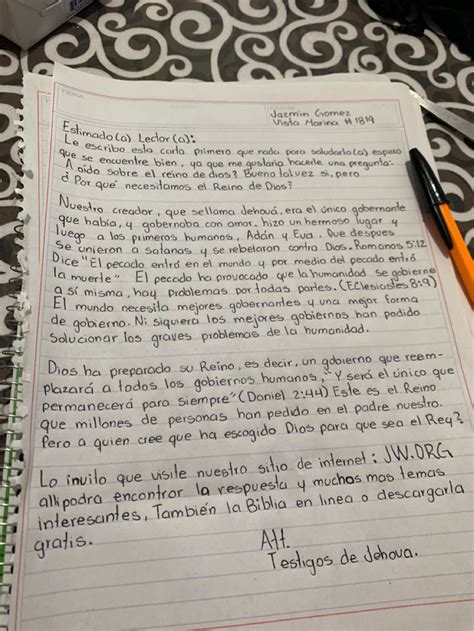 TEMA
Jazmin Gomez
Vista Marina #1819
Estimado(a) Lector(a):
Le escribo esta carta primero que nada para saludarlo(a) espero
que se encuentre bien, ya que me gustaria hacerle una pregunta:
A oido sobre el reino de dios? Bueno tal vez si, pero
¿Por que necesitamos el Reino de Dios?
Nuestro creador, que sellama Jehová, era el único gobernante
que había, y gobernaba con amor. hizo un hermoso lugar y
luego a los primeros humanos, Adán y Eva. Que despues
se unieron a satanas y se rebelaron contra Dios. Romanos 5:12
Dice "El pecado entró en el mundo y por medio del pecado entró
la muerte" El pecado ha provocado que la humanidad se gobierne
a sí misma, hay problemas por todas partes. (Eclesiastes 8:9)
El mundo necesita mejores gobernantes y una mejor forma
de gobierno. Ni siquiera los mejores gobiernos han podido
solucionar los graves problemas de la humanidad.
Dios ha preparado su Reino, es decir, un gobierno que reem-
plazará a todos los gobiernos humanos, "Y será el único que
permanecerá para siempre" (Daniel 2:44) Este es el Reino
que millones de personas han pedido en el padre nuestro.
Pero a quien cree que ha escogido Dios para que sea el Rey?
Lo invito que visite nuestro sitio de internet: JW.ORG
alli podra encontrar la respuesta y muchos mas temas
interesantes, También la Biblia en linea o descargarla
gratis.
Att.
Testigos de Jehova.